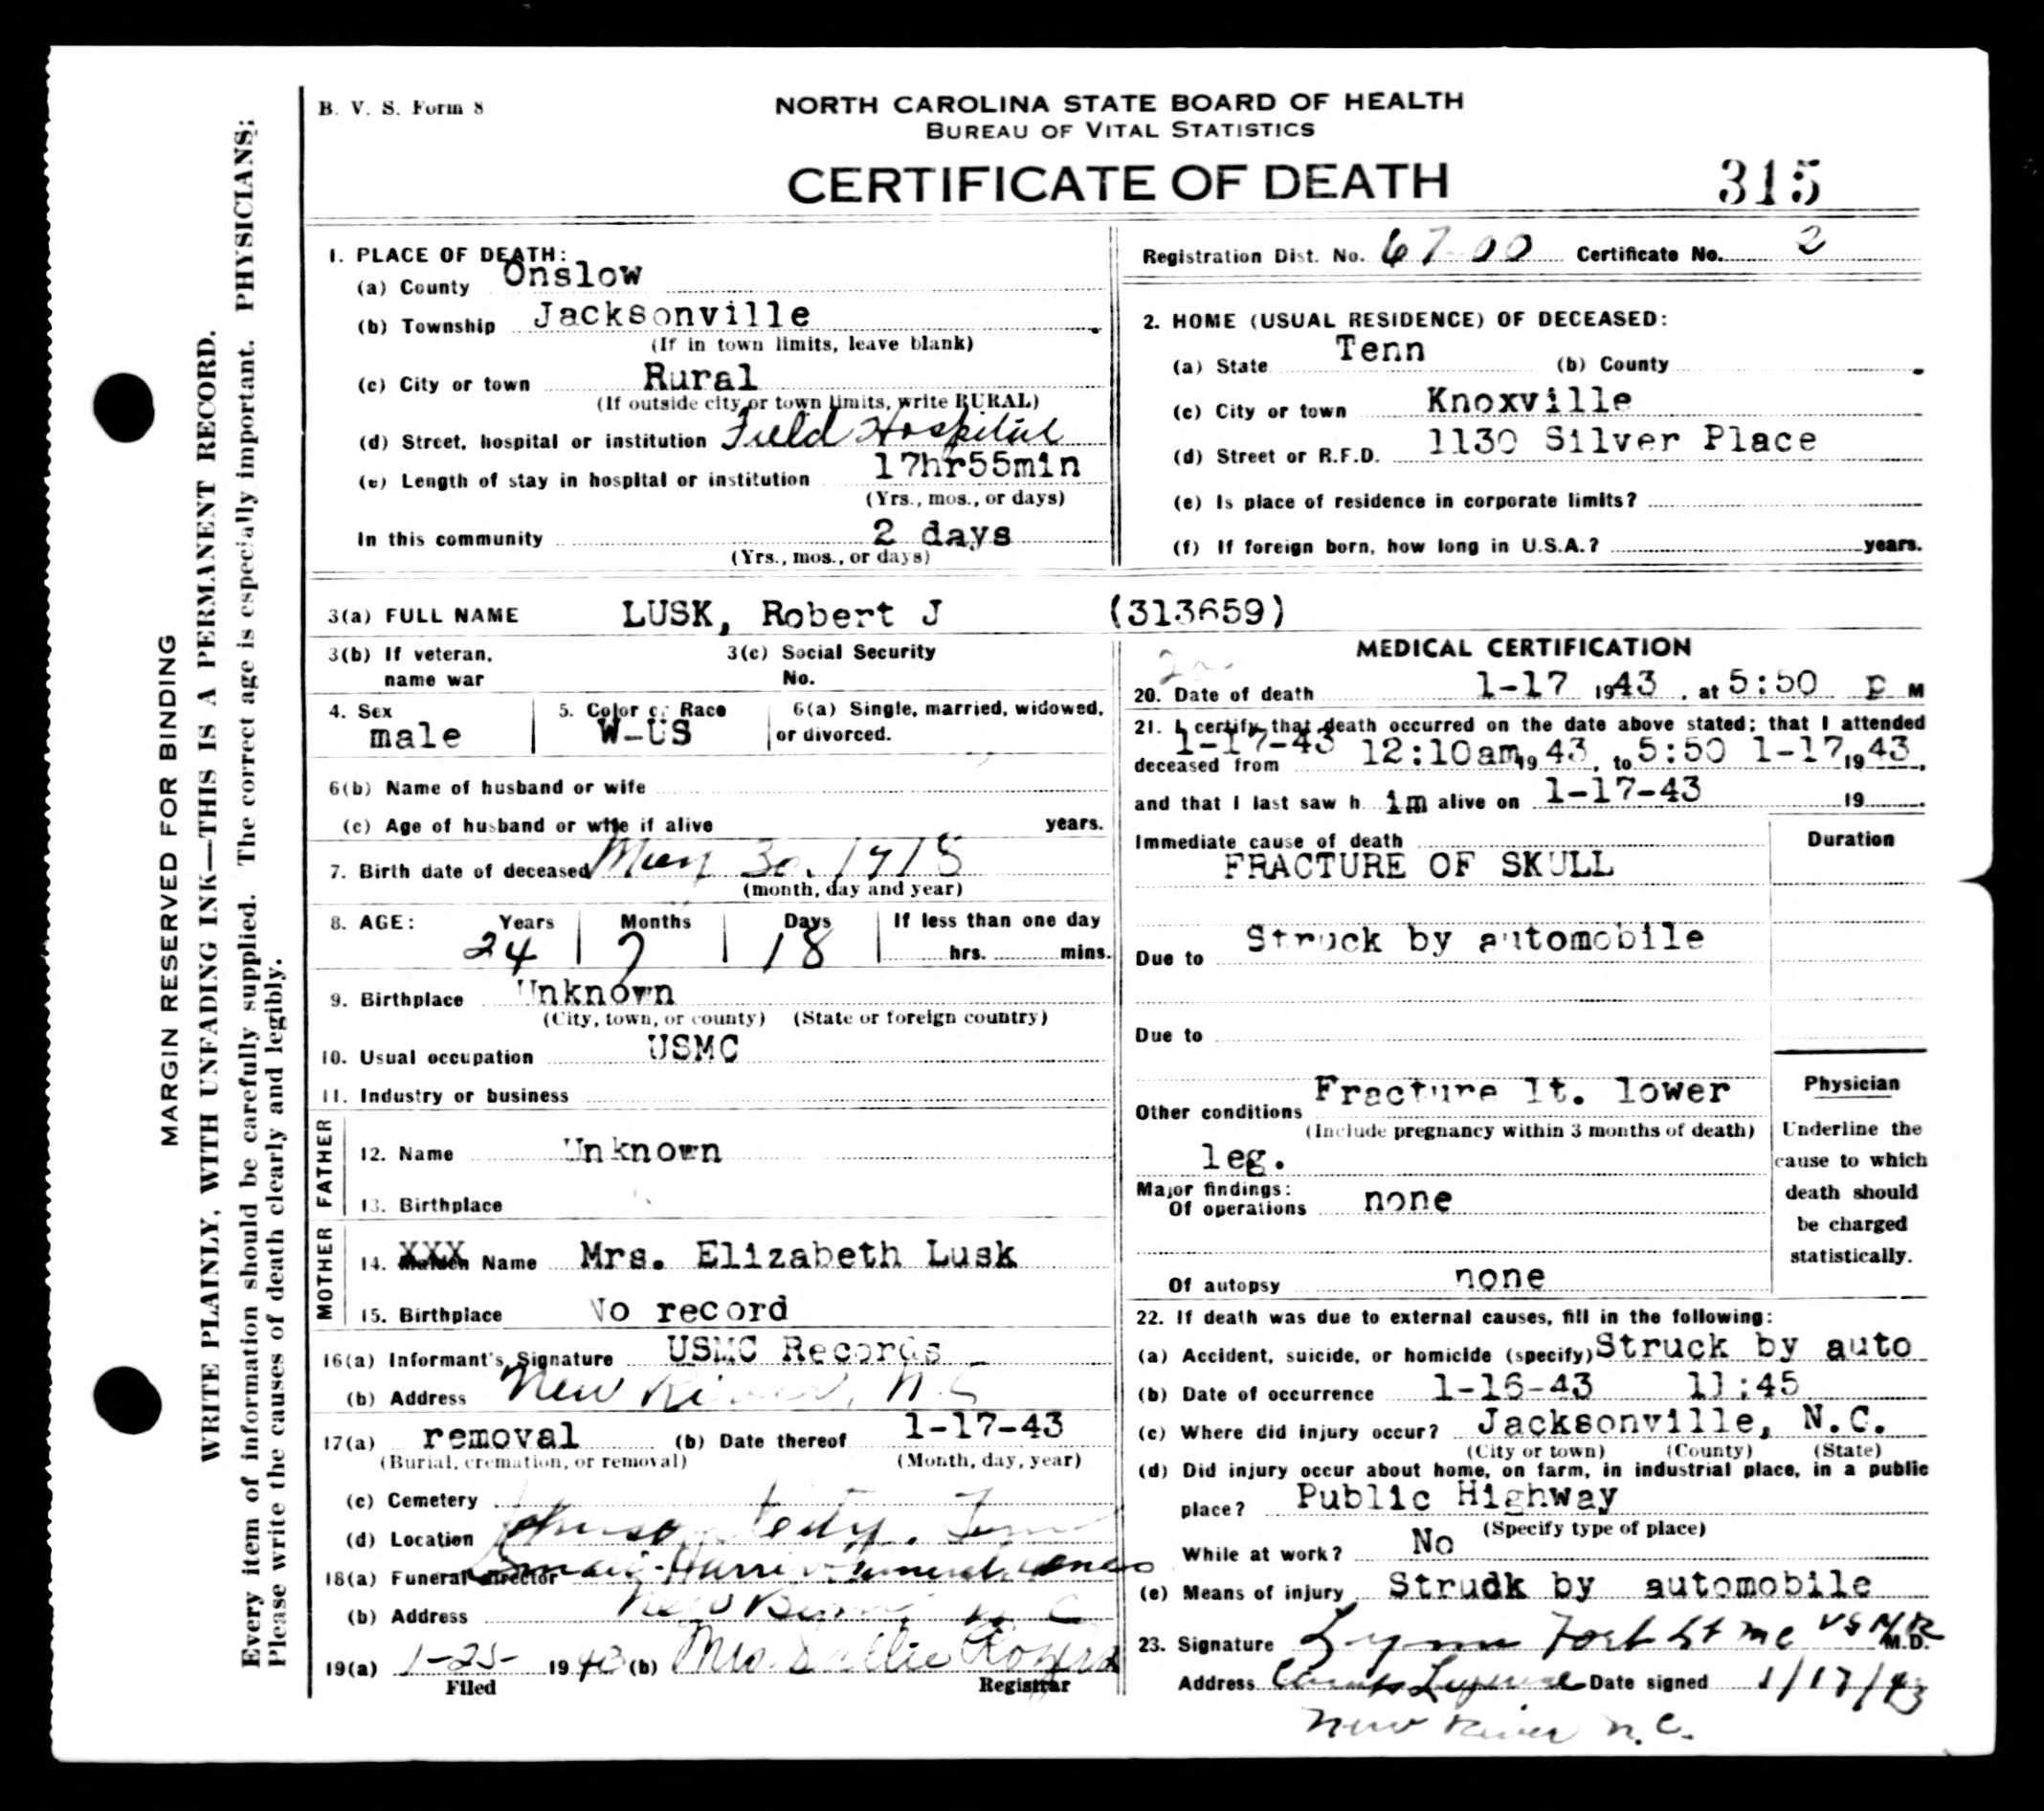 B. V. S. Form 8
NORTH CAROLINA STATE BOARD OF HEALTH
BUREAU OF VITAL STATISTICS
CERTIFICATE OF DEATH
315
MARGIN RESERVED FOR BINDING
WRITE PLAINLY, WITH UNFADING INK—THIS IS A PERMANENT RECORD.
Every item of information should be carefully supplied. The correct age is especially important. PHYSICIANS:
Please write the causes of death clearly and legibly.
1. PLACE OF DEATH:
(a) County Onslow
(b) Township Jacksonville
(If in town limits, leave blank)
(c) City or town Rural
(If outside city or town limits, write RURAL)
(d) Street, hospital or institution Field Hospital
(e) Length of stay in hospital or institution 17hr55min
(Yrs., mos., or days)
In this community 2 days
(Yrs., mos., or days)
Registration Dist. No. 67-00 Certificate No. 2
2. HOME (USUAL RESIDENCE) OF DECEASED:
(a) State Tenn (b) County
(c) City or town Knoxville
(d) Street or R.F.D. 1130 Silver Place
(e) Is place of residence in corporate limits?
(f) If foreign born, how long in U.S.A.? years.
3(a) FULL NAME LUSK, Robert J (313659)
3(b) If veteran, name war
3(c) Social Security No.
4. Sex male
5. Color or Race W-US
6(a) Single, married, widowed, or divorced.
6(b) Name of husband or wife
(c) Age of husband or wife if alive years.
7. Birth date of deceased May 30, 1918
(month, day and year)
8. AGE: Years Months Days If less than one day
24 7 18 hrs. mins.
9. Birthplace Unknown
(City, town, or county) (State or foreign country)
10. Usual occupation USMC
11. Industry or business
FATHER
12. Name Unknown
13. Birthplace
MOTHER
14. XXX Maiden Name Mrs. Elizabeth Lusk
15. Birthplace No record
16(a) Informant's Signature USMC Records
(b) Address New River, N.C
17(a) removal (b) Date thereof 1-17-43
(Burial, cremation, or removal) (Month, day, year)
(c) Cemetery
(d) Location Johnson City, Tenn
18(a) Funeral director Harris Funeral
(b) Address New Bern, N C
19(a) 1-25- 1943 (b) Mrs Sallie Rogers
Filed Registrar
MEDICAL CERTIFICATION
20. Date of death 1-17 1943, at 5:50 p M
21. I certify that death occurred on the date above stated; that I attended
1-17-43
deceased from 12:10am, 19 43, to 5:50 1-17, 19 43,
and that I last saw h im alive on 1-17-43 19
Immediate cause of death Duration
FRACTURE OF SKULL
Due to Struck by automobile
Due to
Other conditions Fracture lt. lower
(Include pregnancy within 3 months of death)
leg.
Major findings:
Of operations none
Of autopsy none
Physician
Underline the
cause to which
death should
be charged
statistically.
22. If death was due to external causes, fill in the following:
(a) Accident, suicide, or homicide (specify) Struck by auto
(b) Date of occurrence 1-16-43 11:45
(c) Where did injury occur? Jacksonville, N.C.
(City or town) (County) (State)
(d) Did injury occur about home, on farm, in industrial place, in a public
place? Public Highway
(Specify type of place)
While at work? No
(e) Means of injury Strudk by automobile
23. Signature Lynn Fort Lt mc USNR M.D.
Address Camp Lejeune Date signed 1/17/43
New River N.C.